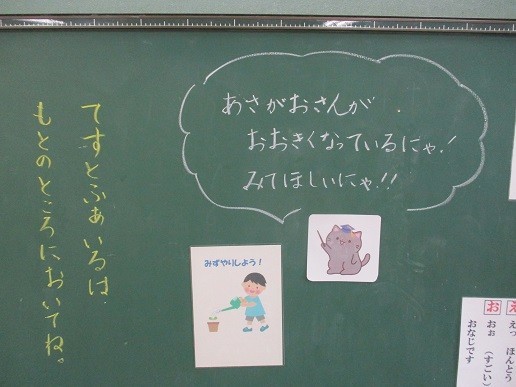 あさがおさんが、
おおきくなっているにゃ!
みてほしいにゃ!!
てすとふぁいるは、
もとのところにおいてね。
みずやりしよう!
え
えっ ほんとう
お
おぉ (すごい
おなじです